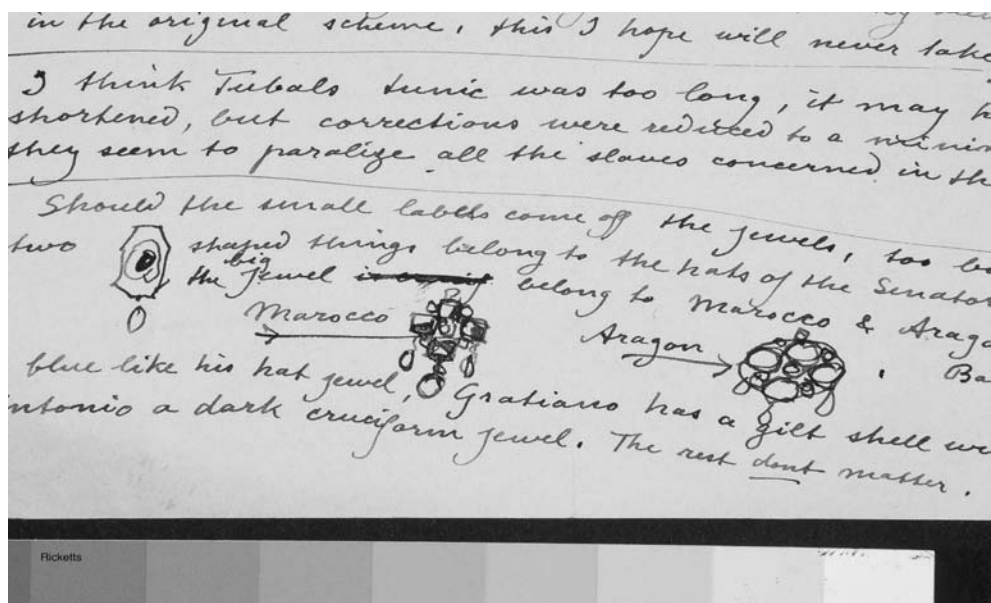 in the original scheme, this I hope will never take
I think Tubals tunic was too long, it may h
shortened, but corrections were reduced to a minim
they seem to paralize all the slaves concerned in th
Should the small labels come off the jewels, too b
two shaped things belong to the hats of the Senator
big
the jewel belong to Marocco & Arago
Marocco
Aragon
blue like his hat jewel, Gratiano has a gilt shell w
Ba
ntonio a dark cruciform jewel. The rest dont matter.
Ricketts